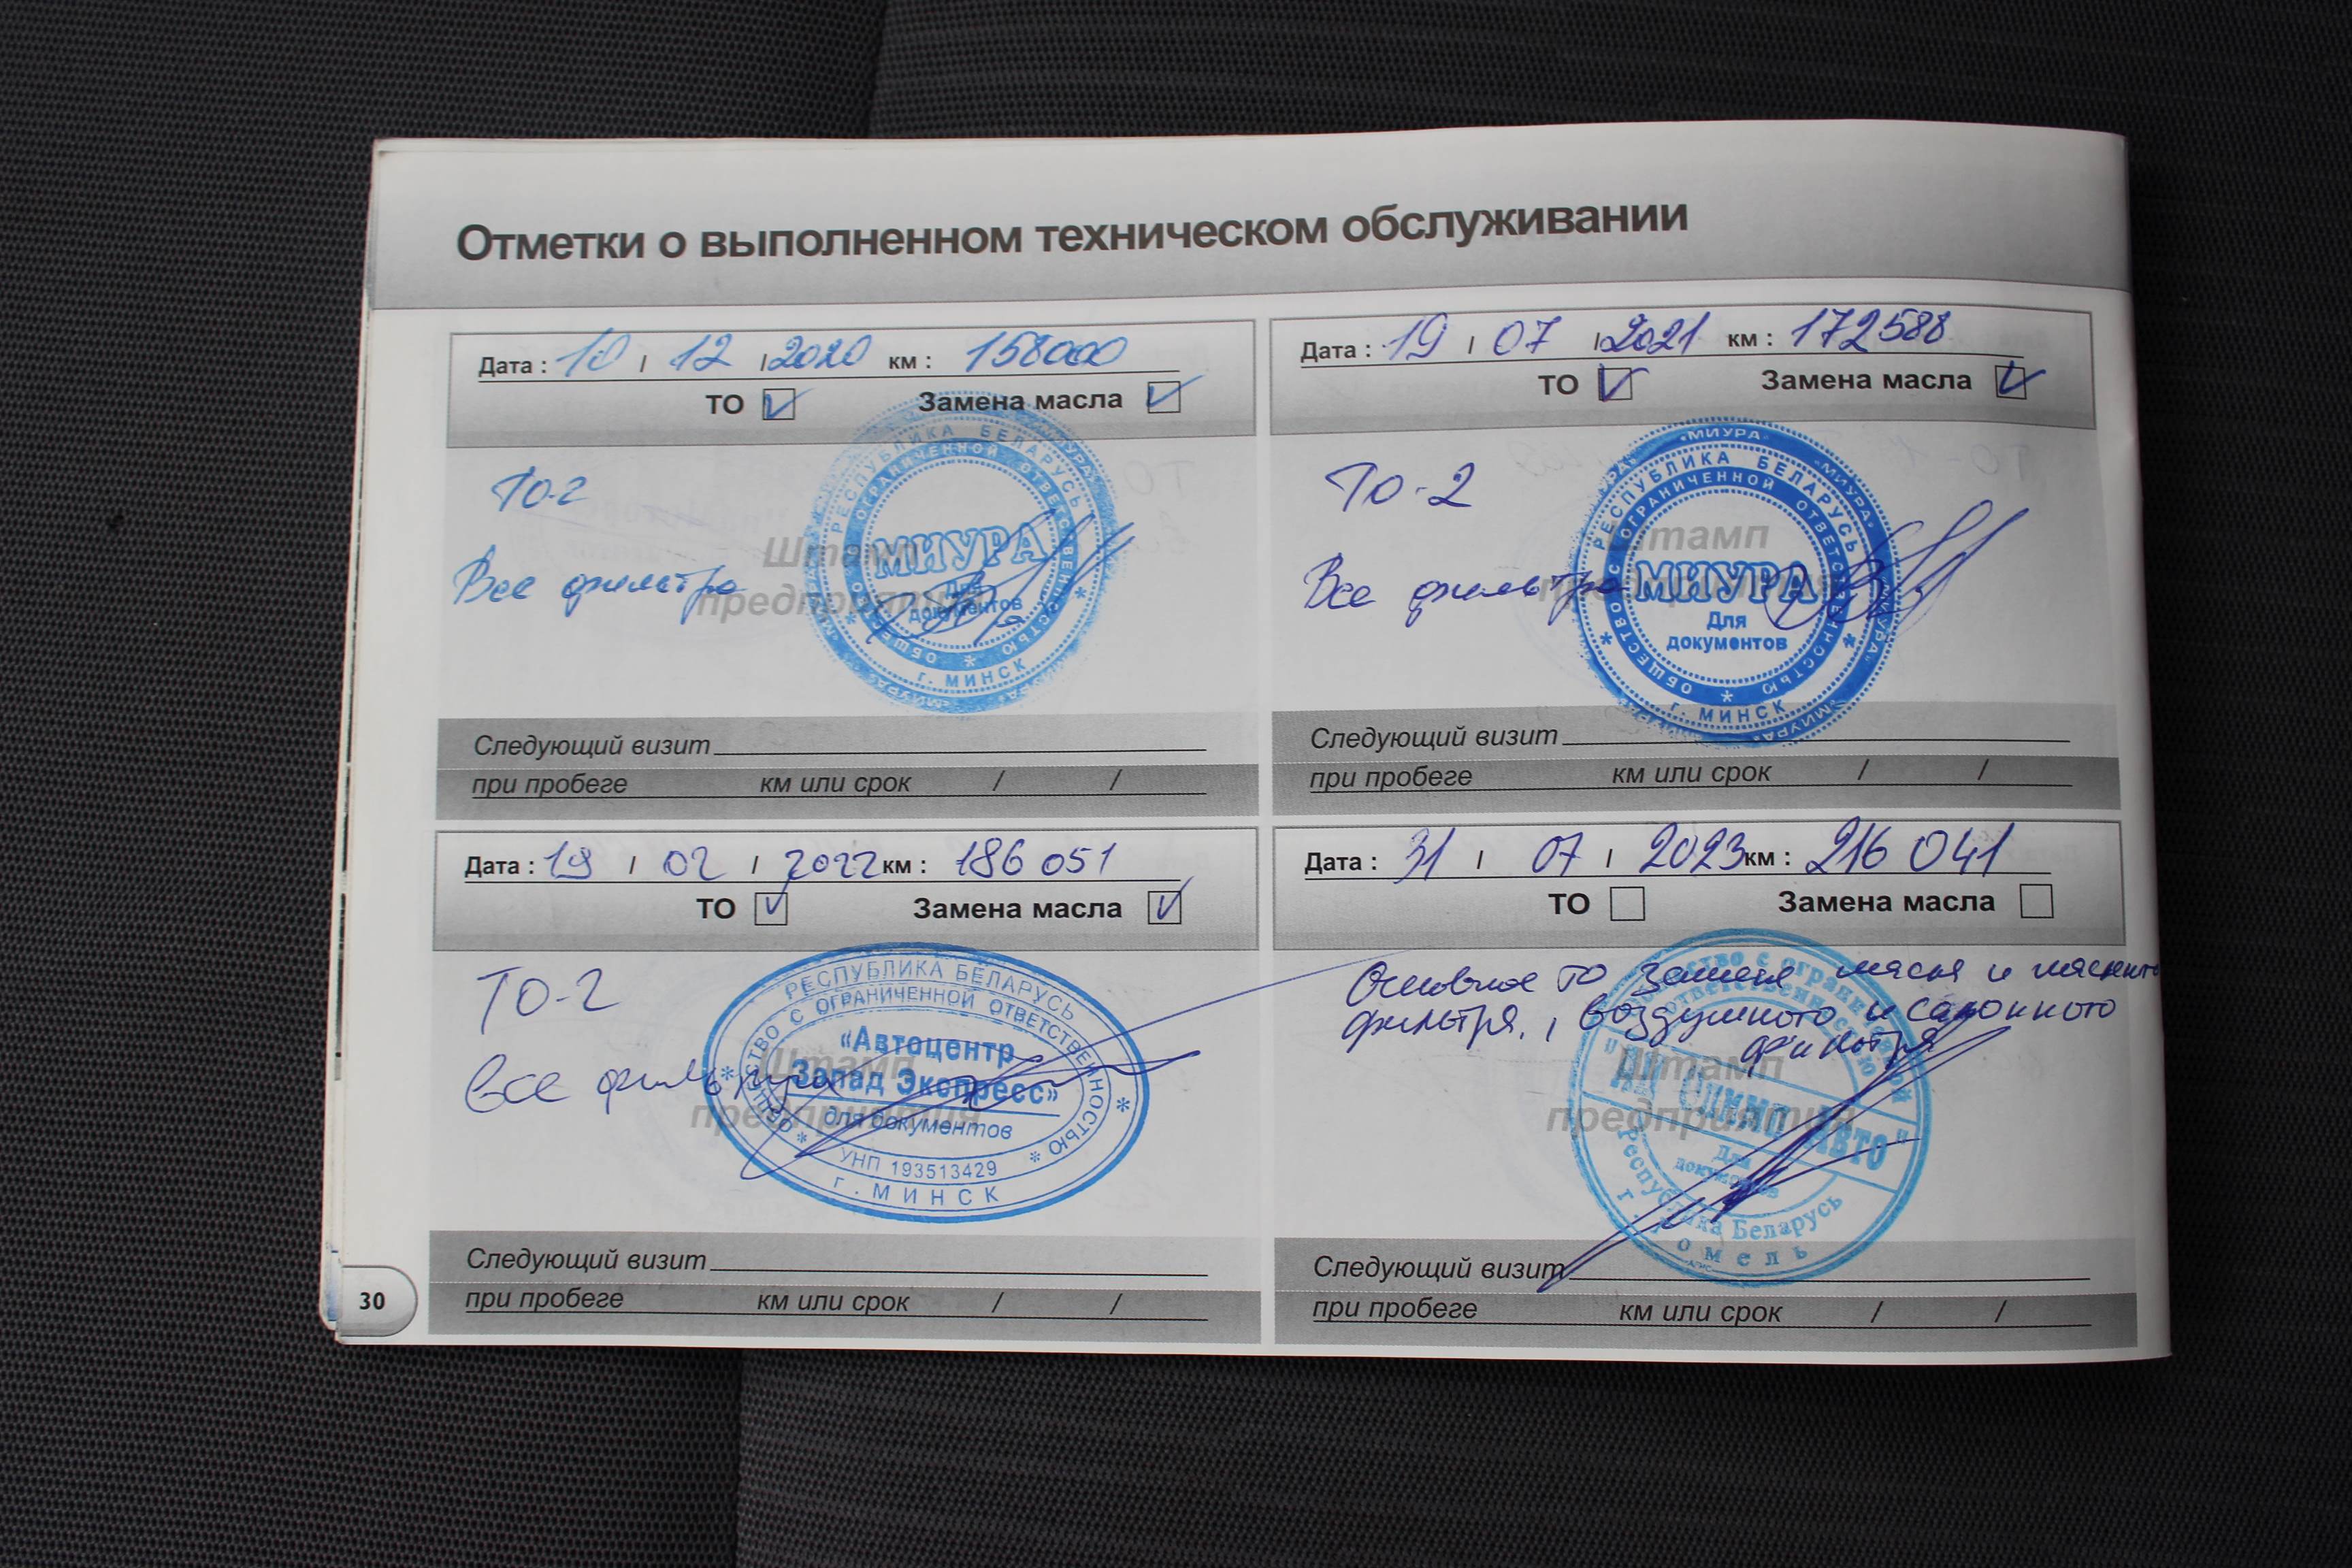 Отметки о выполненном техническом обслуживании
Дата : 10 / 12 / 2020 км : 158000
ТО ✓ Замена масла ✓
ТО-2
Все фильтра
Штамп предприятия
РЕСПУБЛИКА БЕЛАРУСЬ
ОБЩЕСТВО С ОГРАНИЧЕННОЙ ОТВЕТСТВЕННОСТЬЮ
МИУРА
Для
документов
г. МИНСК
Следующий визит
при пробеге км или срок / /
Дата : 19 / 07 / 2021 км : 172588
ТО ✓ Замена масла ✓
ТО-2
Все фильтра
Штамп предприятия
«МИУРА» «МИУРА» «МИУРА»
РЕСПУБЛИКА БЕЛАРУСЬ
ОБЩЕСТВО С ОГРАНИЧЕННОЙ ОТВЕТСТВЕННОСТЬЮ
МИУРА
Для
документов
г. МИНСК
Следующий визит
при пробеге км или срок / /
Дата : 19 / 02 / 2022 км : 186 051
ТО ✓ Замена масла ✓
ТО-2
Все фильтра
Штамп предприятия
РЕСПУБЛИКА БЕЛАРУСЬ
ОБЩЕСТВО С ОГРАНИЧЕННОЙ ОТВЕТСТВЕННОСТЬЮ
«Автоцентр
Запад Экспресс»
для документов
УНП 193513429
г. МИНСК
Следующий визит
при пробеге км или срок / /
Дата : 31 / 07 / 2023 км : 216 041
ТО Замена масла
Основное ТО замена масла и масляного
фильтра, воздушного и салонного
фильтра
Штамп предприятия
Общество с ограниченной
ответственностью
АВТО"
Для
документов
Республика Беларусь
г. Гомель
Следующий визит
при пробеге км или срок / /
30